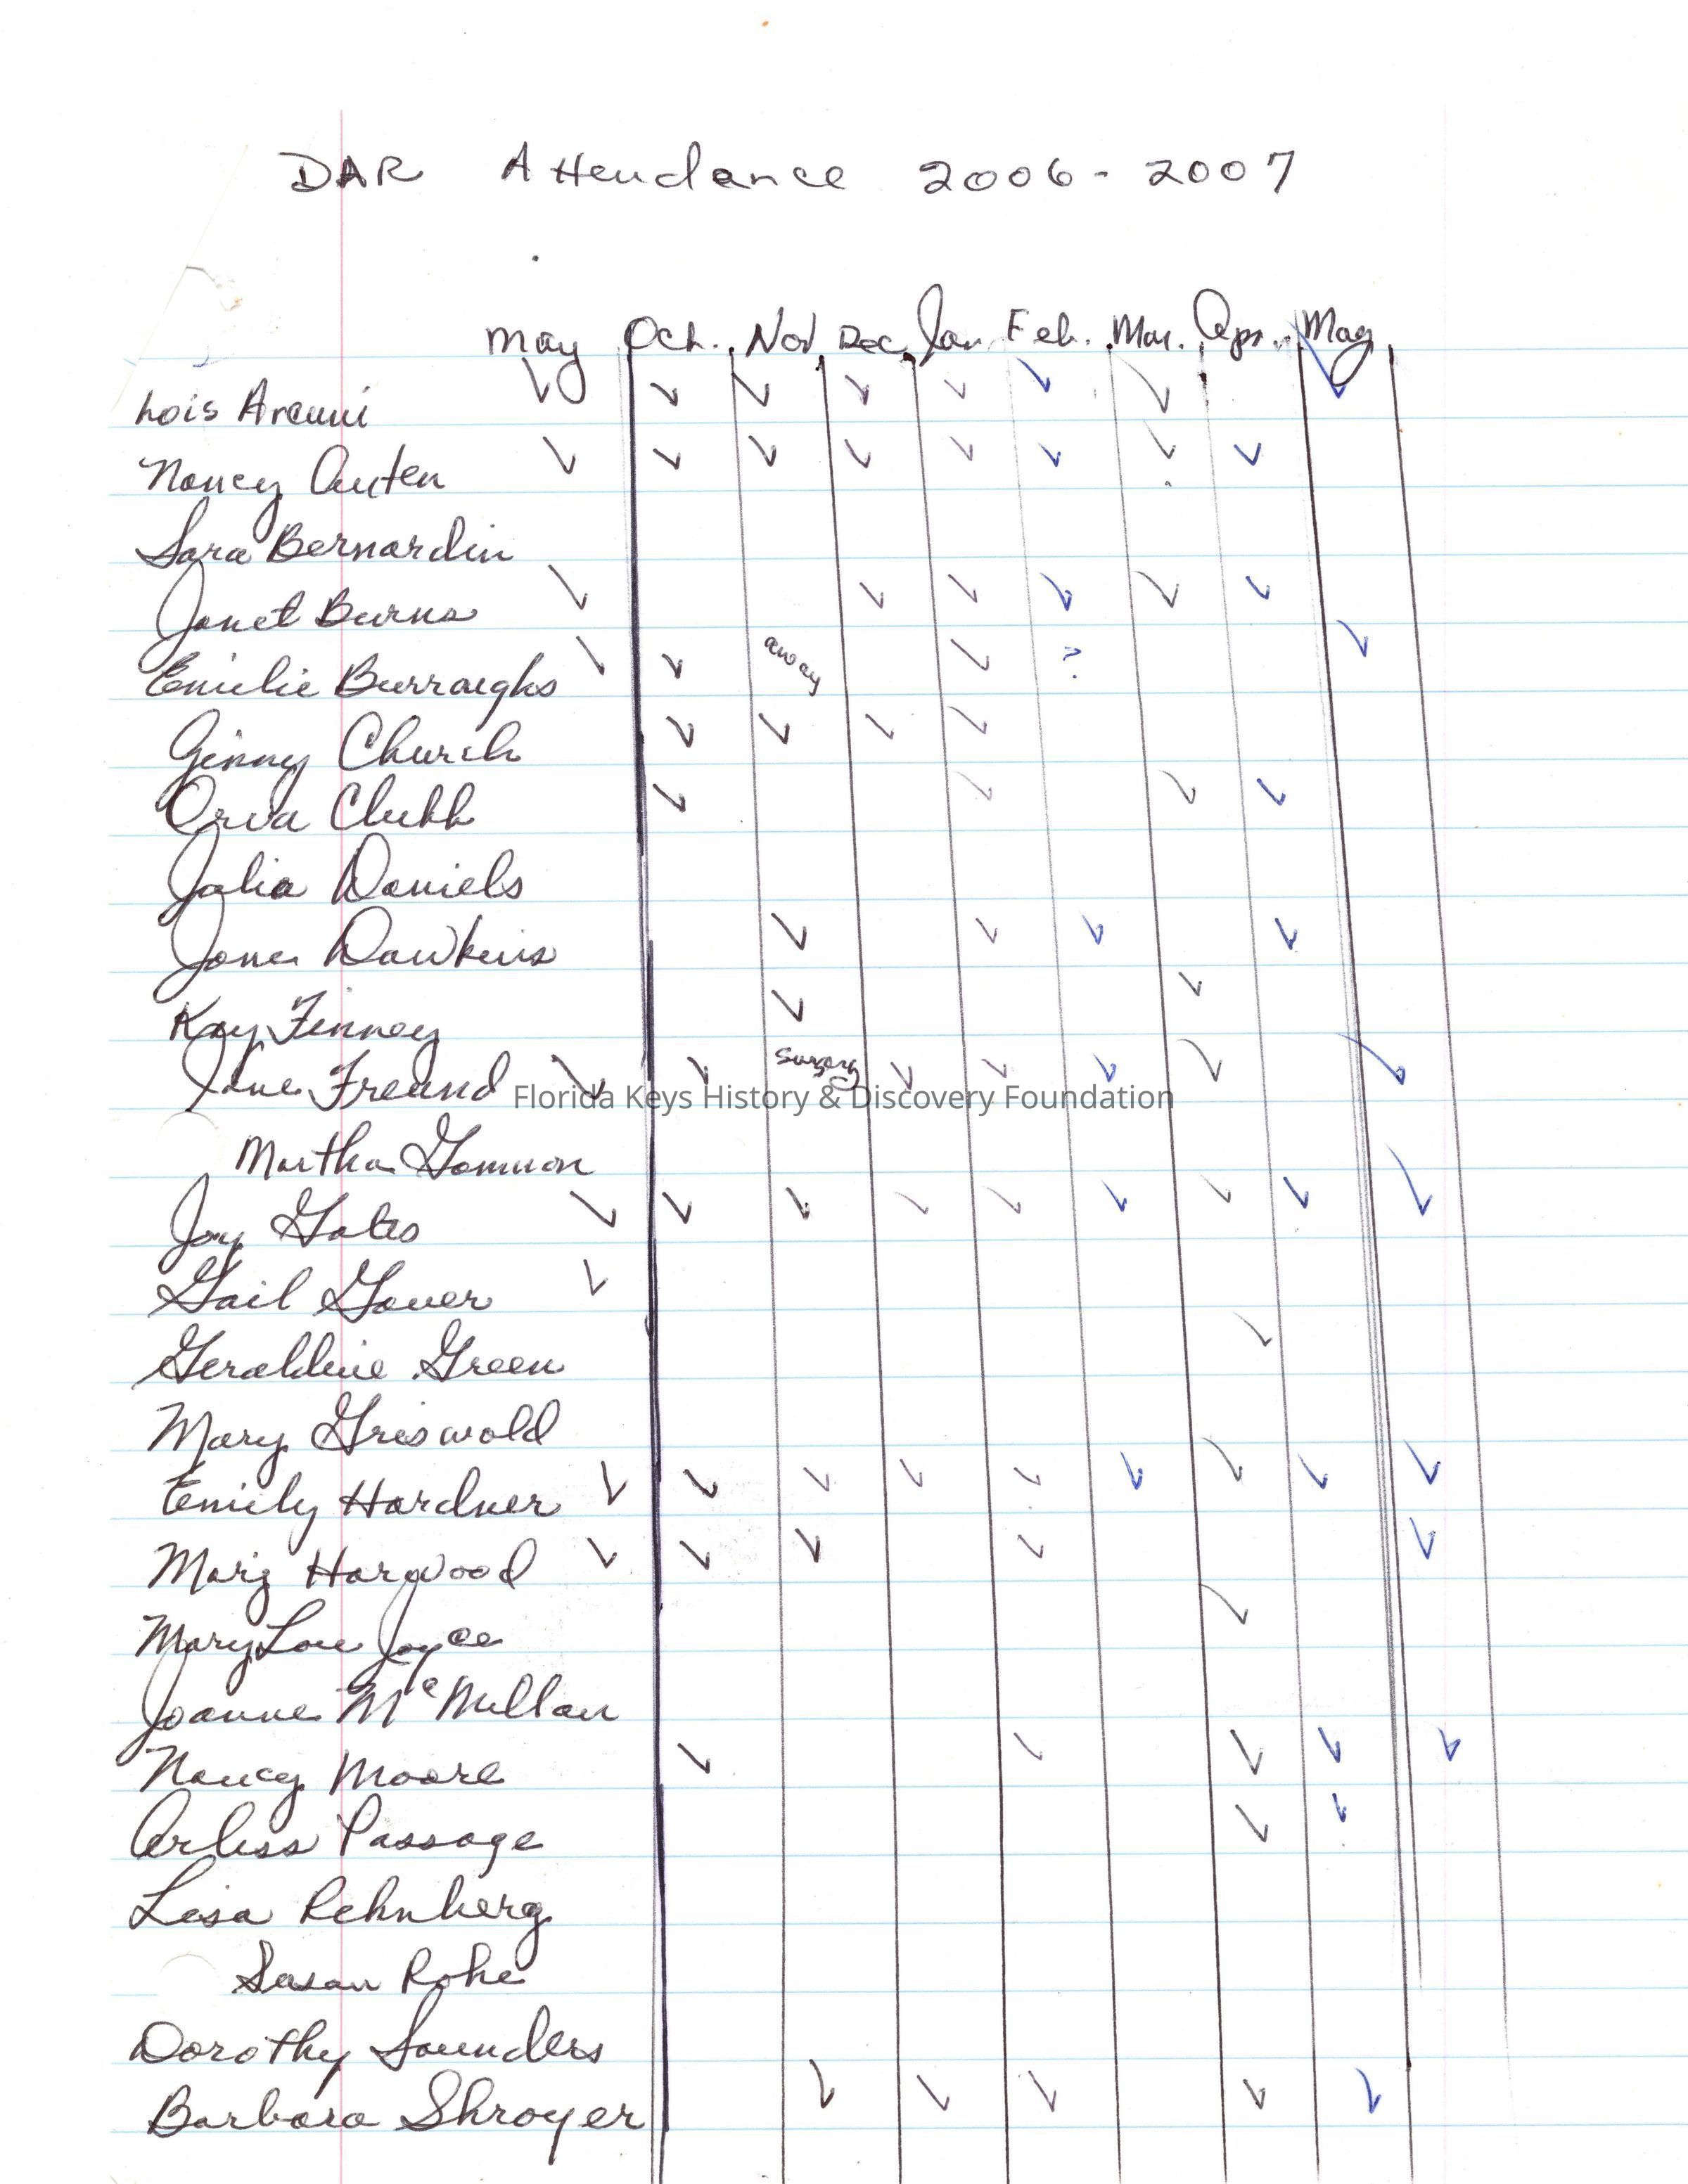 DAR Attendance 2006-2007
May Oct. Nov Dec Jan Feb. Mar. Apr. May
Lois Arcuni ✓ ✓ ✓ ✓ ✓ ✓ ✓ ✓
Nancy Auten ✓ ✓ ✓ ✓ ✓ ✓ ✓ ✓
Sara Bernardin
Janet Burns ✓ ✓ ✓ ✓ ✓ ✓
Emilie Burraughs ✓ ✓ away ✓ ? ✓
Ginny Church ✓ ✓ ✓ ✓
Orva Clubb ✓ ✓ ✓ ✓
Julia Daniels
Jane Dawkins ✓ ✓ ✓ ✓
Kay Finney ✓ ✓
Jane Freund ✓ ✓ surgery ✓ ✓ ✓ ✓ ✓
Florida Keys History & Discovery Foundation
Martha Gammon
Joy Gates ✓ ✓ ✓ ✓ ✓ ✓ ✓ ✓ ✓
Gail Gover ✓
Geraldine Green ✓
Mary Griswold
Emily Hardner ✓ ✓ ✓ ✓ ✓ ✓ ✓ ✓ ✓
Marg Harwood ✓ ✓ ✓ ✓ ✓
Mary Lou Joyce ✓
Joanne McMillan
Nancy Moore ✓ ✓ ✓ ✓ ✓
Arliss Passage ✓ ✓
Lisa Rehnberg
Susan Rohe
Dorothy Saunders
Barbara Shroyer ✓ ✓ ✓ ✓ ✓